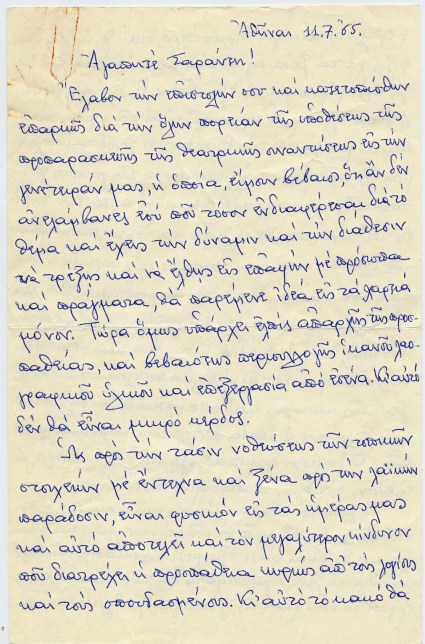 Ἀθῆναι 11.7.'65.
Ἀγαπητὲ Σαράντη!
Ἔλαβον τὴν ἐπιστολήν σου καὶ κατετοπίσθην
ἐπαρκῶς διὰ τὴν ὅλην πορείαν τῆς ὑποθέσεως τῆς
προπαρασκευῆς τῆς θεατρικῆς συναντήσεως εἰς τὴν
γενέτειράν μας, ἡ ὁποία, εἶμαι βέβαιος, ὅτι ἂν δὲν
ἀνελάμβανες ἐσὺ ποὺ τόσον ἐνδιαφέρεσαι διὰ τὸ
θέμα καὶ ἔχεις τὴν δύναμιν καὶ τὴν διάθεσιν
νὰ τρέξῃς καὶ νὰ ἔλθῃς εἰς ἐπαφὴν μὲ πρόσωπα
καὶ πράγματα, θὰ παρέμενε ἰδέα εἰς τὰ χαρτιὰ
μόνον. Τώρα ὅμως ὑπάρχει ἐλπὶς ἀπαρχῆς τῆς προσ-
παθείας, καὶ βεβαιότης περισυλλογῆς ἱκανοῦ λαο-
γραφικοῦ ὑλικοῦ καὶ ἐπεξεργασία ἀπὸ ἐσένα. Κι' αὐτὸ
δὲν θὰ εἶναι μικρὸ κέρδος.
Ὡς πρὸς τὴν τάσιν νοθεύσεως τῶν τοπικῶν
στοιχείων μὲ ἔντεχνα καὶ ξένα πρὸς τὴν λαϊκὴν
παράδοσιν, εἶναι φυσικὸν εἰς τὰς ἡμέρας μας
καὶ αὐτὸ ἀποτελεῖ καὶ τὸν μεγαλύτερον κίνδυνον
ποὺ διατρέχει ἡ προσπάθεια κυρίως ἀπ' τοὺς λογίους
καὶ τοὺς σπουδασμένους. Κι' αὐτὸ τὸ κακὸ θὰ